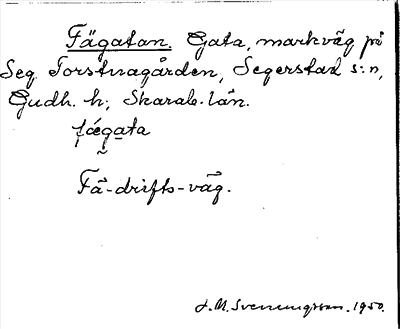 Fägatan. Gata, markväg på
Seg. Torstnagården, Segerstad s:n,
Gudh. h; Skarab. län.
fǽgata
Fä-drifts-väg.
J. M. Svenungsson. 1950.